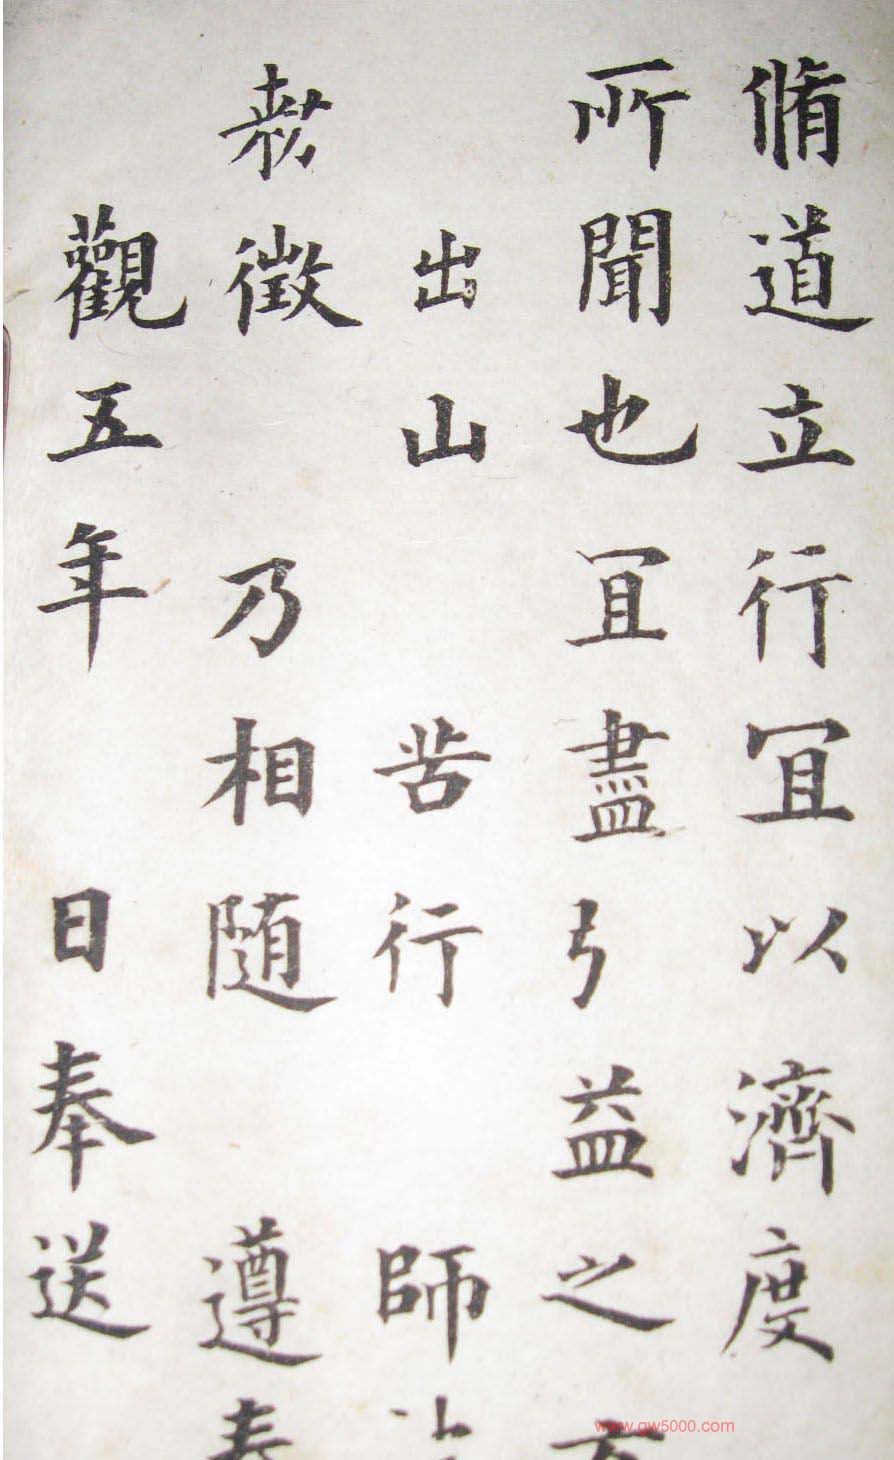 脩道立行冝以濟度
所聞也冝盡弓益之
出山 苦行 師
勑徵 乃相随 遵
觀五年 日奉送
www.gw5000.com